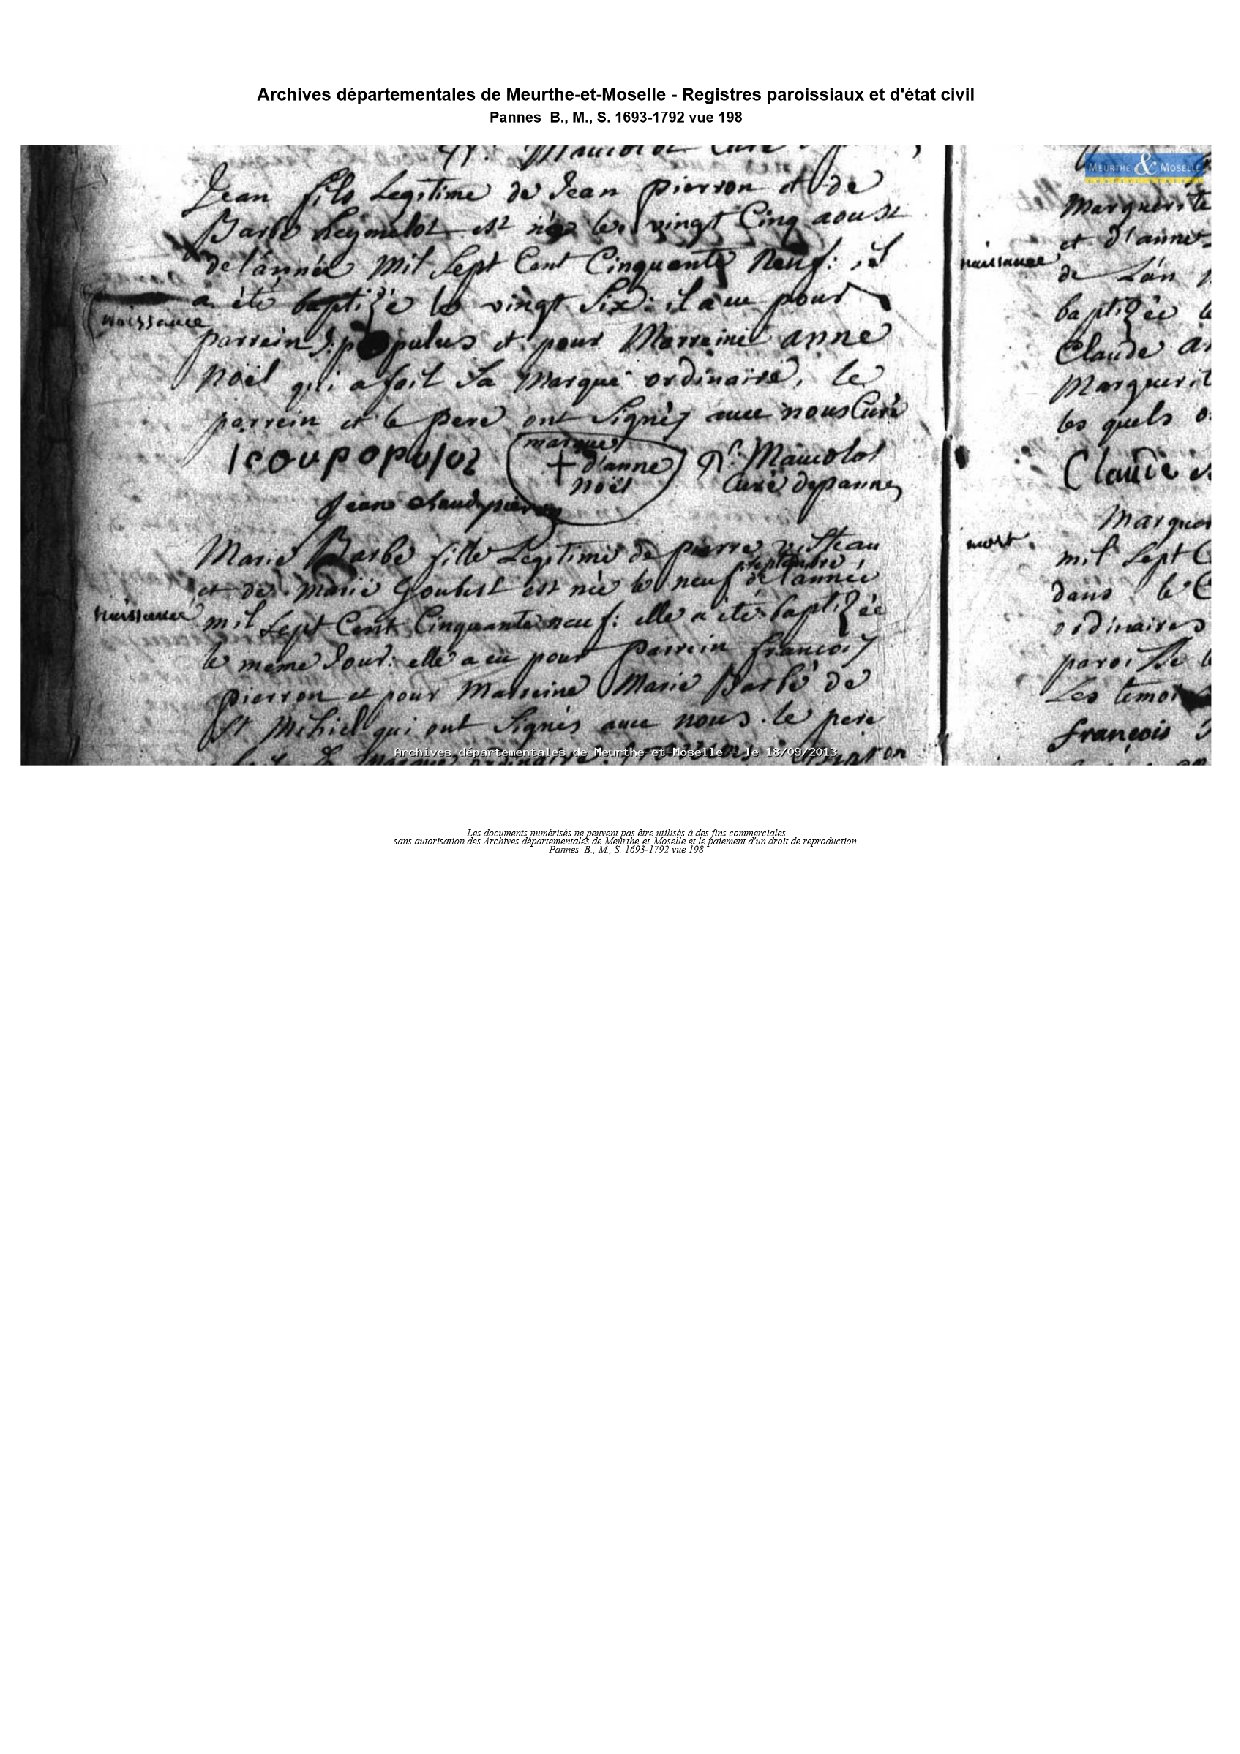 Archives départementales de Meurthe-et-Moselle - Registres paroissiaux et d'état civil
Pannes B., M., S. 1693-1792 vue 198
Jean fils Legitime de Jean pierron et de
Barbe est née le vingt Cinq aoust
de l'année mil Sept Cent Cinquante Neuf: il
a été baptizée le vingt Six: il a eu pour
naissance
parrein populus et pour Marreine anne
Noël qui a fait sa marque ordinaire, le
parrein et le pere ont Signés avec nous Curé
marque
d'anne
noël
Curé depannes
Marie Barbe fille Legitime de pierre
septembre
et de Marie est née le neuf de l'année
naissance
mil Sept Cent Cinquante neuf: elle a été baptizée
le meme Jour: elle a eu pour parrein francois
pierron et pour Marreine Marie Barbe de
St Mihiel qui ont Signés avec nous. le pere
MEURTHE & MOSELLE
Marguerite
et d'anne
naissance
de L'an
baptizée
Claude
les quels
Claude
mort
mil Sept
dans le
ordinaires
Les temoi
francois
Archives départementales de Meurthe et Moselle - le 18/09/2013
Les documents numérisés ne peuvent pas être utilisés à des fins commerciales
sans autorisation des Archives départementales de Meurthe et Moselle et le paiement d'un droit de reproduction
Pannes B., M., S. 1693-1792 vue 198